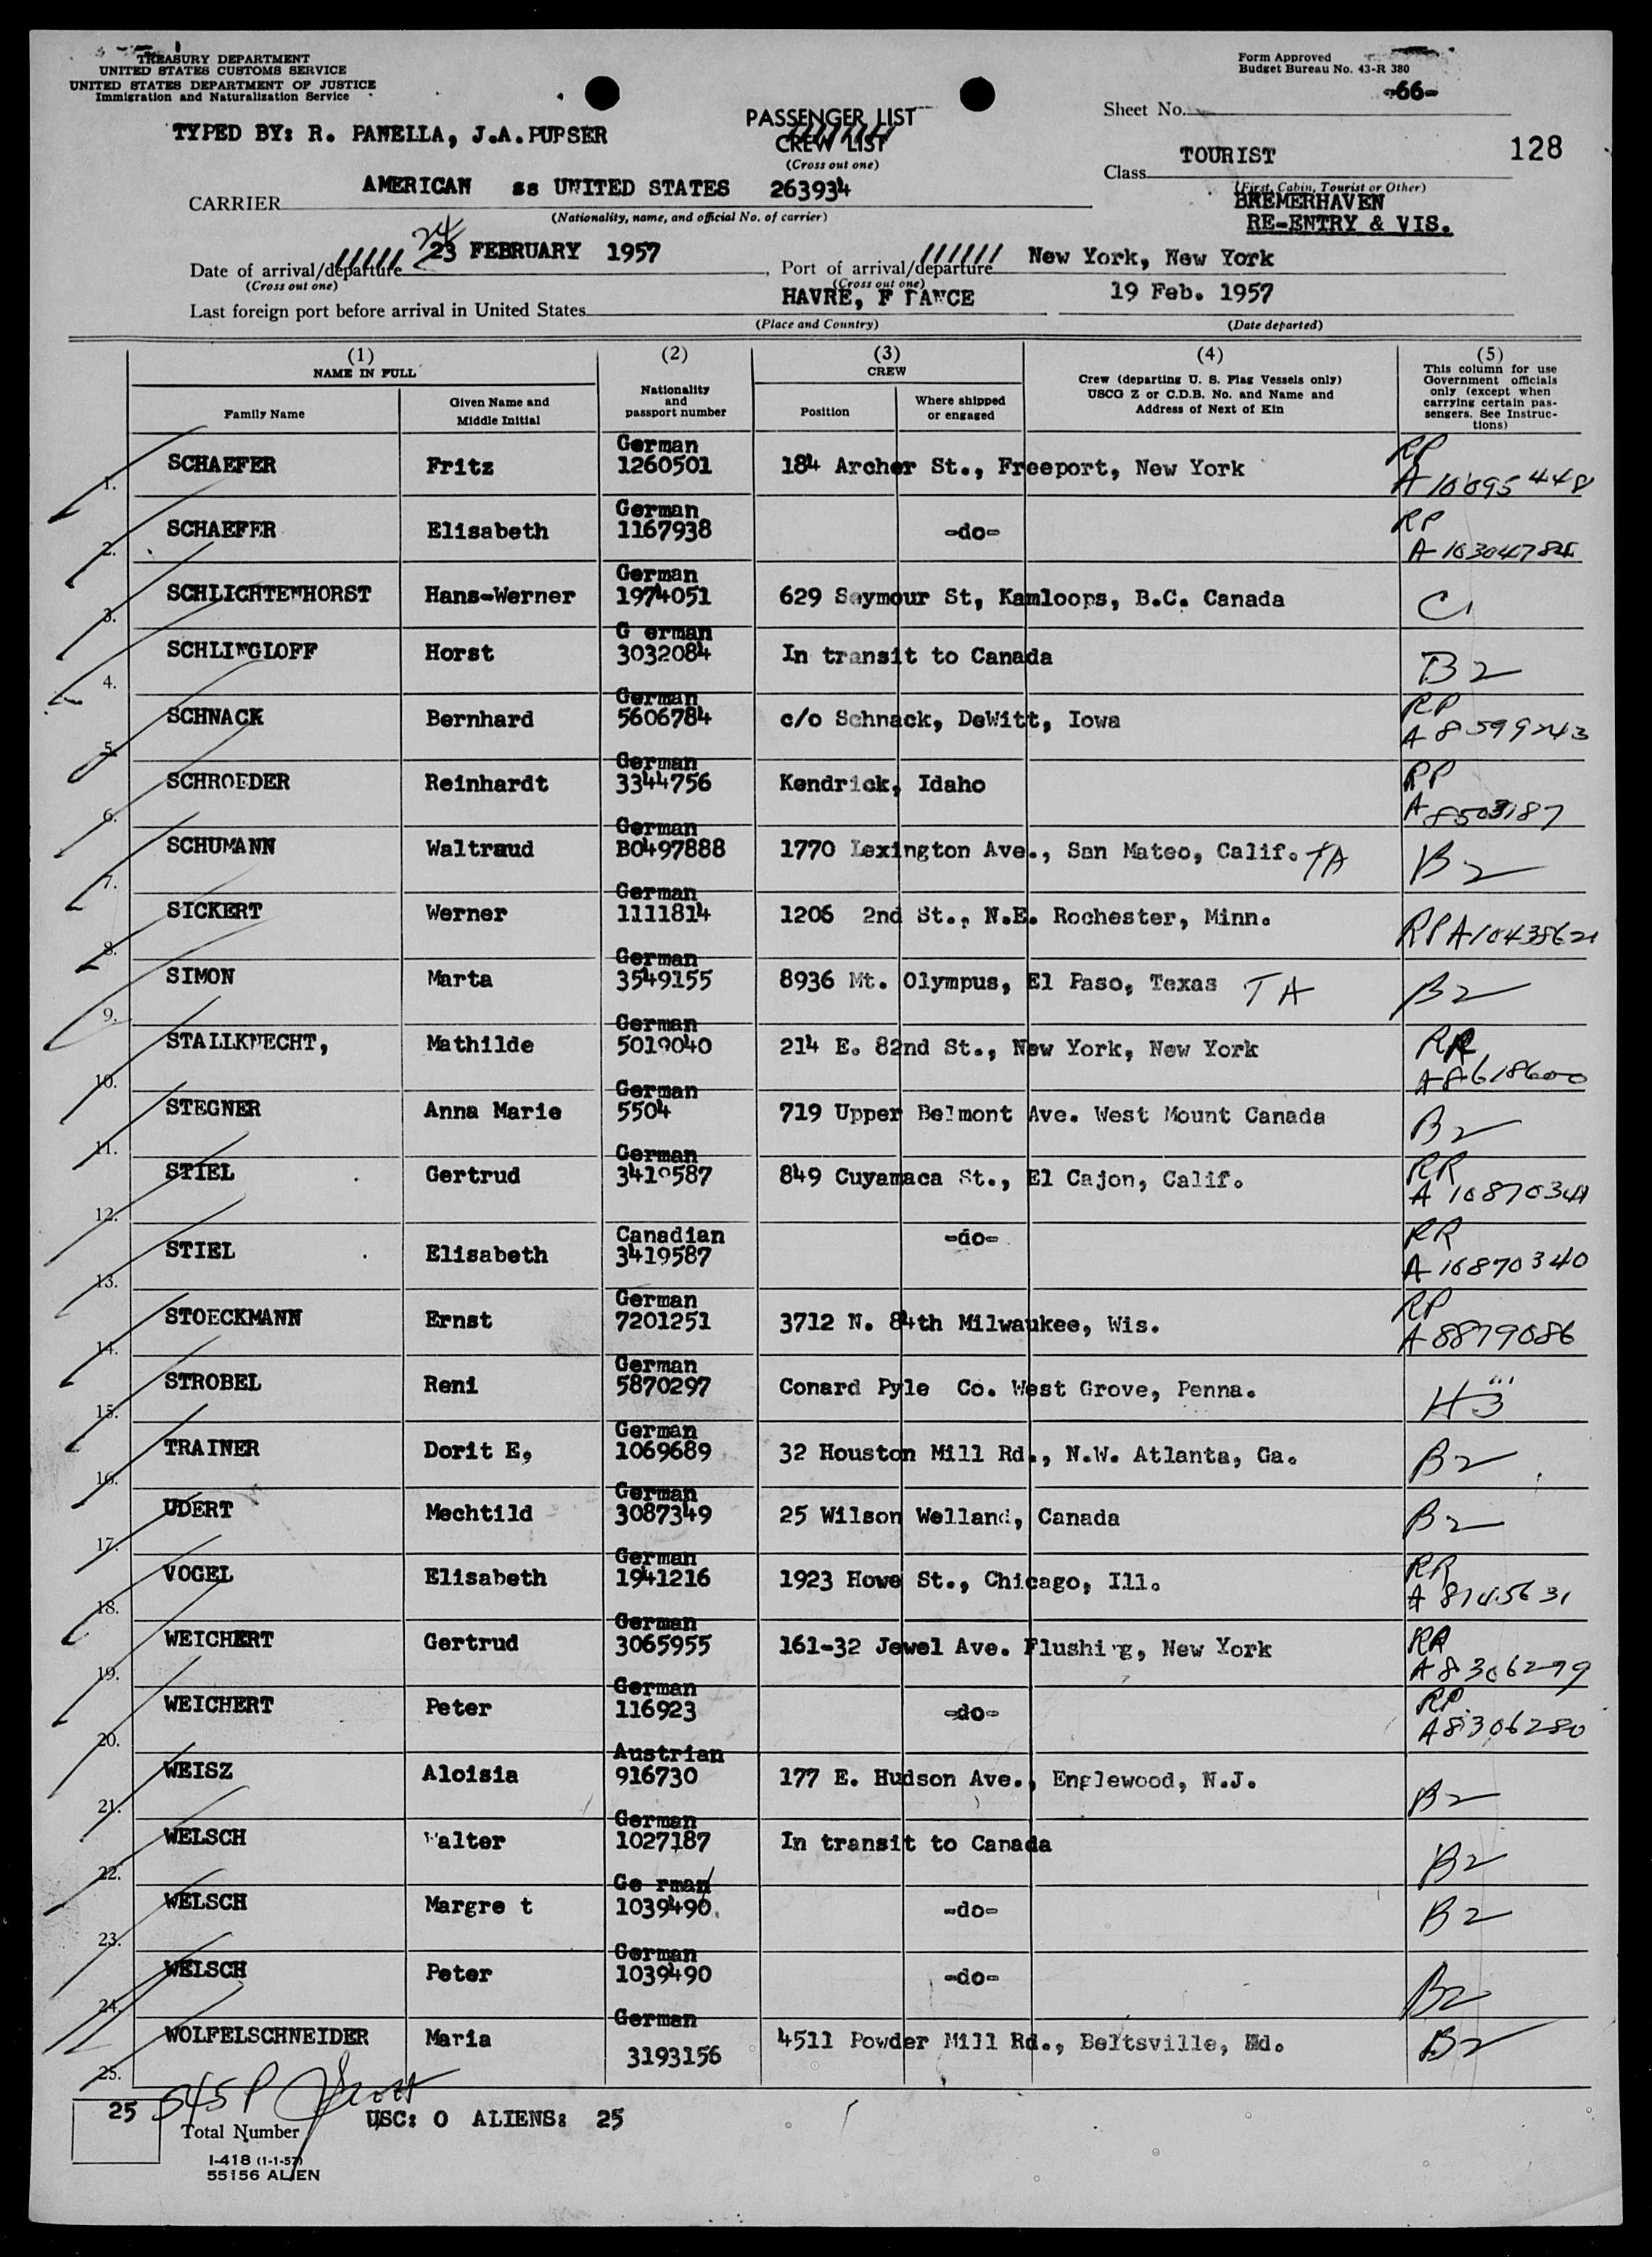 TREASURY DEPARTMENT
UNITED STATES CUSTOMS SERVICE
UNITED STATES DEPARTMENT OF JUSTICE
Immigration and Naturalization Service
Form Approved
Budget Bureau No. 43-R 380
Sheet No. -66-
TYPED BY: R. PANELLA, J.A.PURSER
PASSENGER LIST
CREW LIST
(Cross out one)
128
Class TOURIST
(First, Cabin, Tourist or Other)
BREMERHAVEN
RE-ENTRY & VIS.
CARRIER AMERICAN ss UNITED STATES 263934
(Nationality, name, and official No. of carrier)
24
Date of arrival/departure 23 FEBRUARY 1957, Port of arrival/departure New York, New York
(Cross out one) (Cross out one)
Last foreign port before arrival in United States HAVRE, F RANCE 19 Feb. 1957
(Place and Country) (Date departed)
(1) NAME IN FULL
Family Name
Given Name and Middle Initial
(2) Nationality and passport number
(3) CREW
Position
Where shipped or engaged
(4) Crew (departing U. S. Flag Vessels only) USCG Z or C.D.B. No. and Name and Address of Next of Kin
(5) This column for use Government officials only (except when carrying certain passengers. See Instructions)
1. SCHAEFER Fritz German 1260501 184 Archer St., Freeport, New York RP A 10095448
2. SCHAEFER Elisabeth German 1167938 -do- RP
3. SCHLICHTENHORST Hans-Werner German 1974051 629 Seymour St, Kamloops, B.C. Canada
4. SCHLINGLOFF Horst G erman 3032084 In transit to Canada B2
5. SCHNACK Bernhard German 5606784 c/o Schnack, DeWitt, Iowa RP A 8599243
6. SCHROEDER Reinhardt German 3344756 Kendrick, Idaho RP A 8503187
7. SCHUMANN Waltraud German B0497888 1770 Lexington Ave., San Mateo, Calif. TA B2
8. SICKERT Werner German 1111814 1206 2nd St., N.E. Rochester, Minn. RP
9. SIMON Marta German 3549155 8936 Mt. Olympus, El Paso, Texas TA B2
10. STALLKNECHT, Mathilde German 5019040 214 E. 82nd St., New York, New York RR A8618600
11. STEGNER Anna Marie German 5504 719 Upper Belmont Ave. West Mount Canada B2
12. STIEL Gertrud German 3419587 849 Cuyamaca St., El Cajon, Calif. RR
13. STIEL Elisabeth Canadian 3419587 -do- RR A 10870340
14. STOECKMANN Ernst German 7201251 3712 N. 84th Milwaukee, Wis. RP A 8879086
15. STROBEL Reni German 5870297 Conard Pyle Co. West Grove, Penna. H3
16. TRAINER Dorit E, German 1069689 32 Houston Mill Rd., N.W. Atlanta, Ga. B2
17. UDERT Mechtild German 3087349 25 Wilson Welland, Canada B2
18. VOGEL Elisabeth German 1941216 1923 Howe St., Chicago, Ill. RR A 8145631
19. WEICHERT Gertrud German 3065955 161-32 Jewel Ave. Flushing, New York RR A8306279
20. WEICHERT Peter German 116923 -do- RP A8306280
21. WEISZ Aloisia Austrian 916730 177 E. Hudson Ave., Englewood, N.J. B2
22. WELSCH Walter German 1027187 In transit to Canada B2
23. WELSCH Margre t Ge rman 1039490 -do- B2
24. WELSCH Peter German 1039490 -do- B2
25. WOLFELSCHNEIDER Maria German 3193156 4511 Powder Mill Rd., Beltsville, Md. B2
25 545 P
Total Number
USC: 0 ALIENS: 25
I-418 (1-1-57)
55156 ALIEN